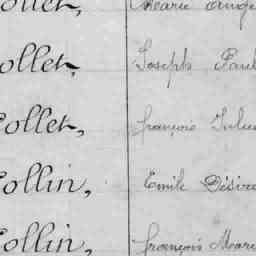 ollet, Marie Ange
ollet, Joseph Paul
Collet, françois Jules
Collin, Emile Désiré
Collin, françois Marie